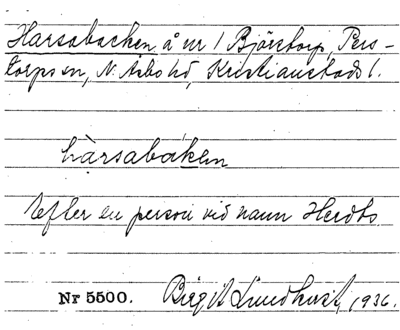 Harsabacken å nr 1 Björstorp, Pers-
torps sn, N. Åsbo hd, Kristianstads l.
hàrsabákən
Efter en person vid namn Herdts
Nr 5500. Birgit Lundkvist, 1936.